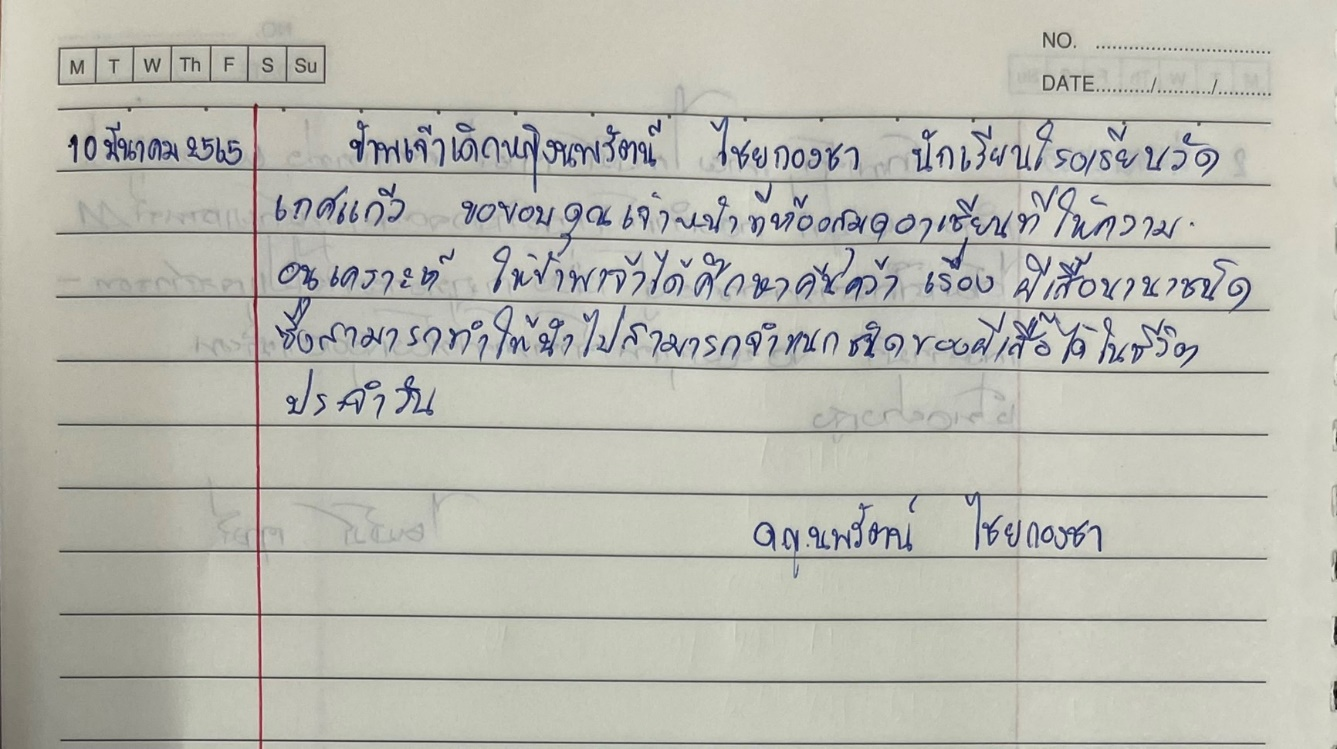 NO. ..............................
M T W Th F S Su
DATE........../........../..........
10 มีนาคม 2565 ข้าพเจ้าเด็กหญิงนพรัตน์ ไชยกองชา นักเรียนโรงเรียนวัด
เกศแก้ว ขอขอบคุณเจ้าหน้าที่ห้องสมุดอาเซียนที่ให้ความ
อนุเคราะห์ ให้ข้าพเจ้าได้ศึกษาค้นคว้า เรื่อง ผีเสื้อนานาชนิด
ซึ่งสามารถทำให้นำไปสามารถจำแนกชนิดของผีเสื้อได้ในชีวิต
ประจำวัน
ดญ.นพรัตน์ ไชยกองชา